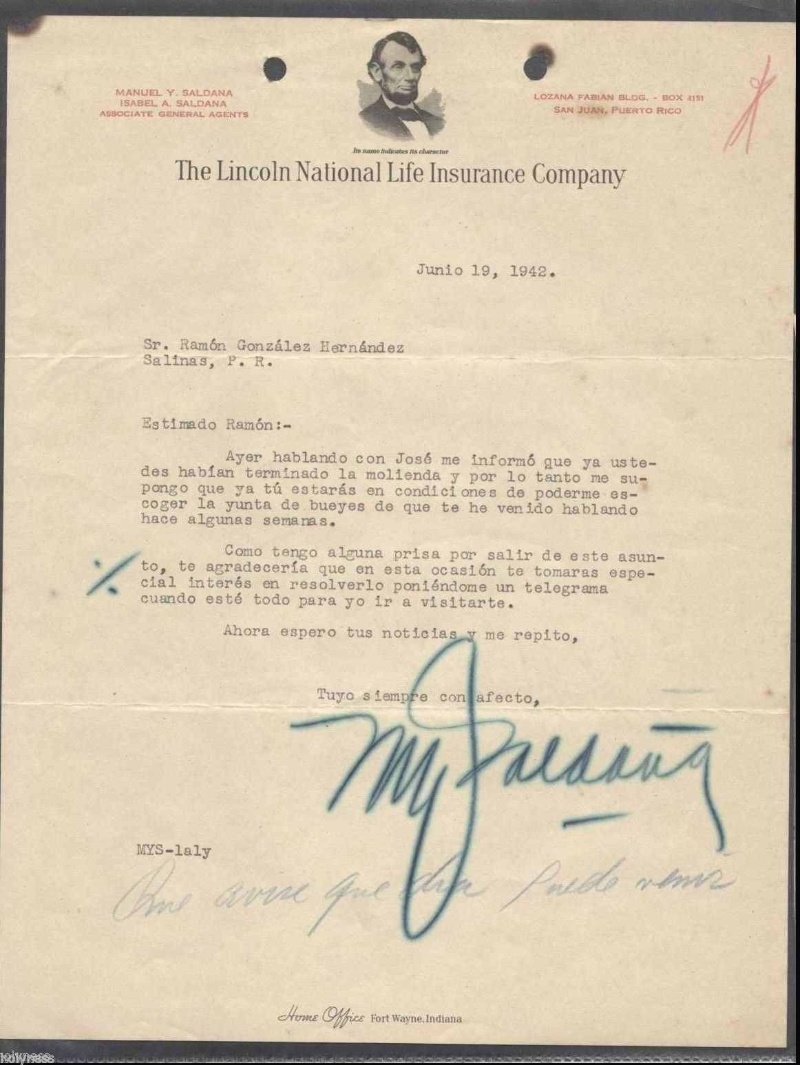 MANUEL Y. SALDANA
ISABEL A. SALDANA
ASSOCIATE GENERAL AGENTS
LOZANA FABIAN BLDG. - BOX 4151
SAN JUAN, PUERTO RICO
Its name indicates its character
The Lincoln National Life Insurance Company
Junio 19, 1942.
Sr. Ramón González Hernández
Salinas, P. R.
Estimado Ramón:-
Ayer hablando con José me informó que ya uste-
des habían terminado la molienda y por lo tanto me su-
pongo que ya tú estarás en condiciones de poderme es-
coger la yunta de bueyes de que te he venido hablando
hace algunas semanas.
Como tengo alguna prisa por salir de este asun-
to, te agradecería que en esta ocasión te tomaras espe-
cial interés en resolverlo poniéndome un telegrama
cuando esté todo para yo ir a visitarte.
Ahora espero tus noticias y me repito,
Tuyo siempre con afecto,
MYSaldaña
MYS-laly
Que avise que dia puede venir
Home Office Fort Wayne, Indiana